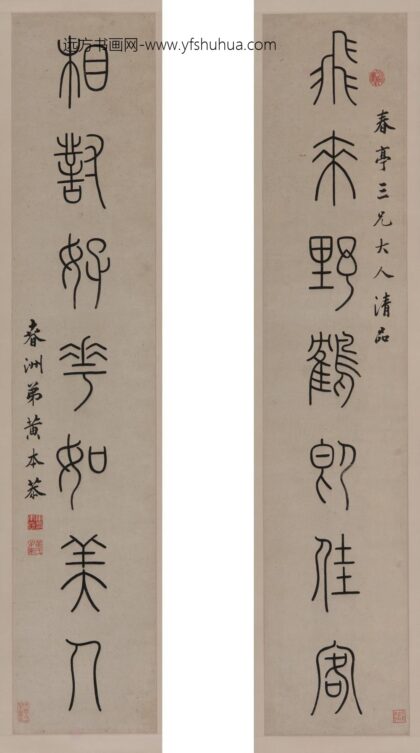 远方书画网-www.yfshuhua.com
春亭三兄大人清品
飛来野鶴即佳客
相對好花如美人
春洲弟黄本恭